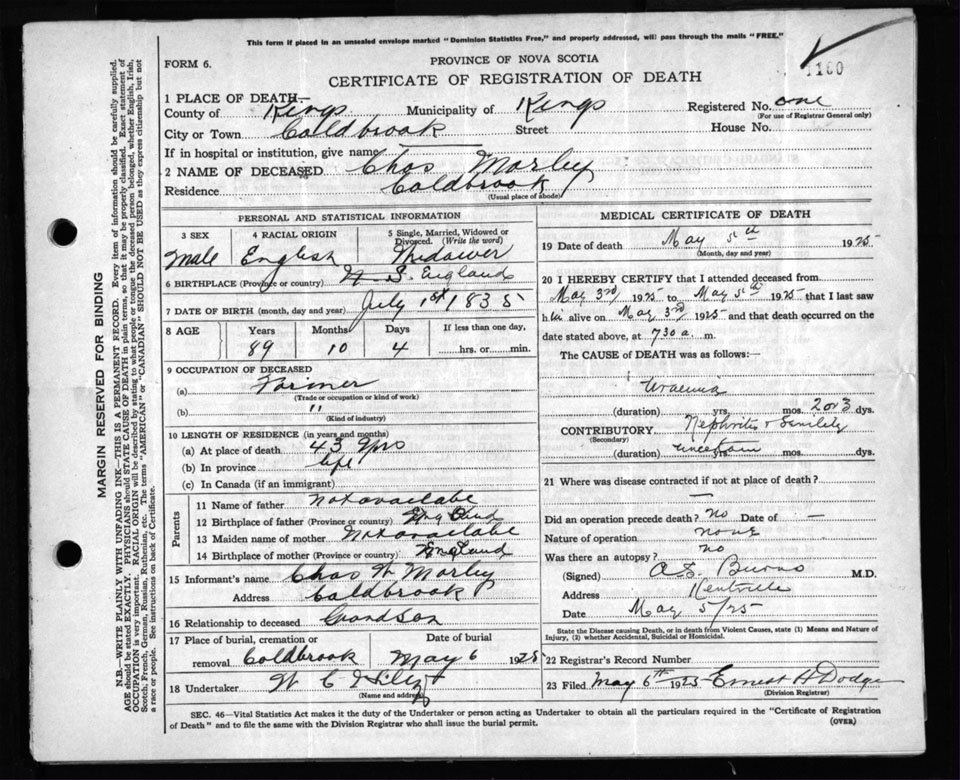 This form if placed in an unsealed envelope marked "Dominion Statistics Free," and properly addressed, will pass through the mails "FREE."
FORM 6.
PROVINCE OF NOVA SCOTIA
CERTIFICATE OF REGISTRATION OF DEATH
1160
1 PLACE OF DEATH—
County of Kings Municipality of Kings Registered No. one
(For use of Registrar General only)
City or Town Coldbrook Street House No.
If in hospital or institution, give name
2 NAME OF DECEASED Chas Morley
Residence Coldbrook
(Usual place of abode)
PERSONAL AND STATISTICAL INFORMATION
3 SEX 4 RACIAL ORIGIN 5 Single, Married, Widowed or Divorced. (Write the word)
Male English Widower
6 BIRTHPLACE (Province or country) N. S. England
7 DATE OF BIRTH (month, day and year) July 1st 1835
8 AGE Years Months Days If less than one day,
89 10 4 hrs. or min.
9 OCCUPATION OF DECEASED
(a) Farmer
(Trade or occupation or kind of work)
(b) "
(Kind of industry)
10 LENGTH OF RESIDENCE (in years and months)
(a) At place of death 43 yrs
(b) In province life
(c) In Canada (if an immigrant)
Parents
11 Name of father Not availabe
12 Birthplace of father (Province or country) England
13 Maiden name of mother Not availabe
14 Birthplace of mother (Province or country) England
15 Informant's name Chas W Morley
Address Coldbrook
16 Relationship to deceased Grandson
17 Place of burial, cremation or removal Coldbrook
Date of burial May 6 1925
18 Undertaker W C
(Name and address)
MEDICAL CERTIFICATE OF DEATH
19 Date of death May 5th 1925
(Month, day and year)
20 I HEREBY CERTIFY that I attended deceased from
May 3rd 1925 to May 5th 1925 that I last saw
him alive on May 3rd 1925 and that death occurred on the
date stated above, at 730 a. m.
The CAUSE of DEATH was as follows:
Uraemia
(duration) yrs. mos. 2 or 3 dys.
CONTRIBUTORY Nephritis & Senility
(Secondary)
(duration) uncertain yrs. mos. dys.
21 Where was disease contracted if not at place of death?
—
Did an operation precede death? No Date of —
Nature of operation none
Was there an autopsy? No
(Signed) A S Burns M.D.
Address Kentville
Date May 5/25
State the Disease causing Death, or in death from Violent Causes, state (1) Means and Nature of
Injury, (2) whether Accidental, Suicidal or Homicidal.
22 Registrar's Record Number
23 Filed May 6th 1925 Ernest H Dodge
(Division Registrar)
SEC. 46—Vital Statistics Act makes it the duty of the Undertaker or person acting as Undertaker to obtain all the particulars required in the "Certificate of Registration
of Death" and to file the same with the Division Registrar who shall issue the burial permit.
(OVER)
MARGIN RESERVED FOR BINDING
N.B.—WRITE PLAINLY WITH UNFADING INK—THIS IS A PERMANENT RECORD. Every item of information should be carefully supplied.
AGE should be stated EXACTLY. PHYSICIANS should STATE CAUSE OF DEATH in plain terms, so that it may be properly classified. Exact statement of
OCCUPATION is very important. RACIAL ORIGIN will be described by stating to what people or tongue the deceased person belonged, whether English, Irish,
Scotch, French, German, Russian, Ruthenian, etc. The terms "AMERICAN" or "CANADIAN" SHOULD NOT BE USED as they express citizenship but not
a race or people. See instructions on back of Certificate.